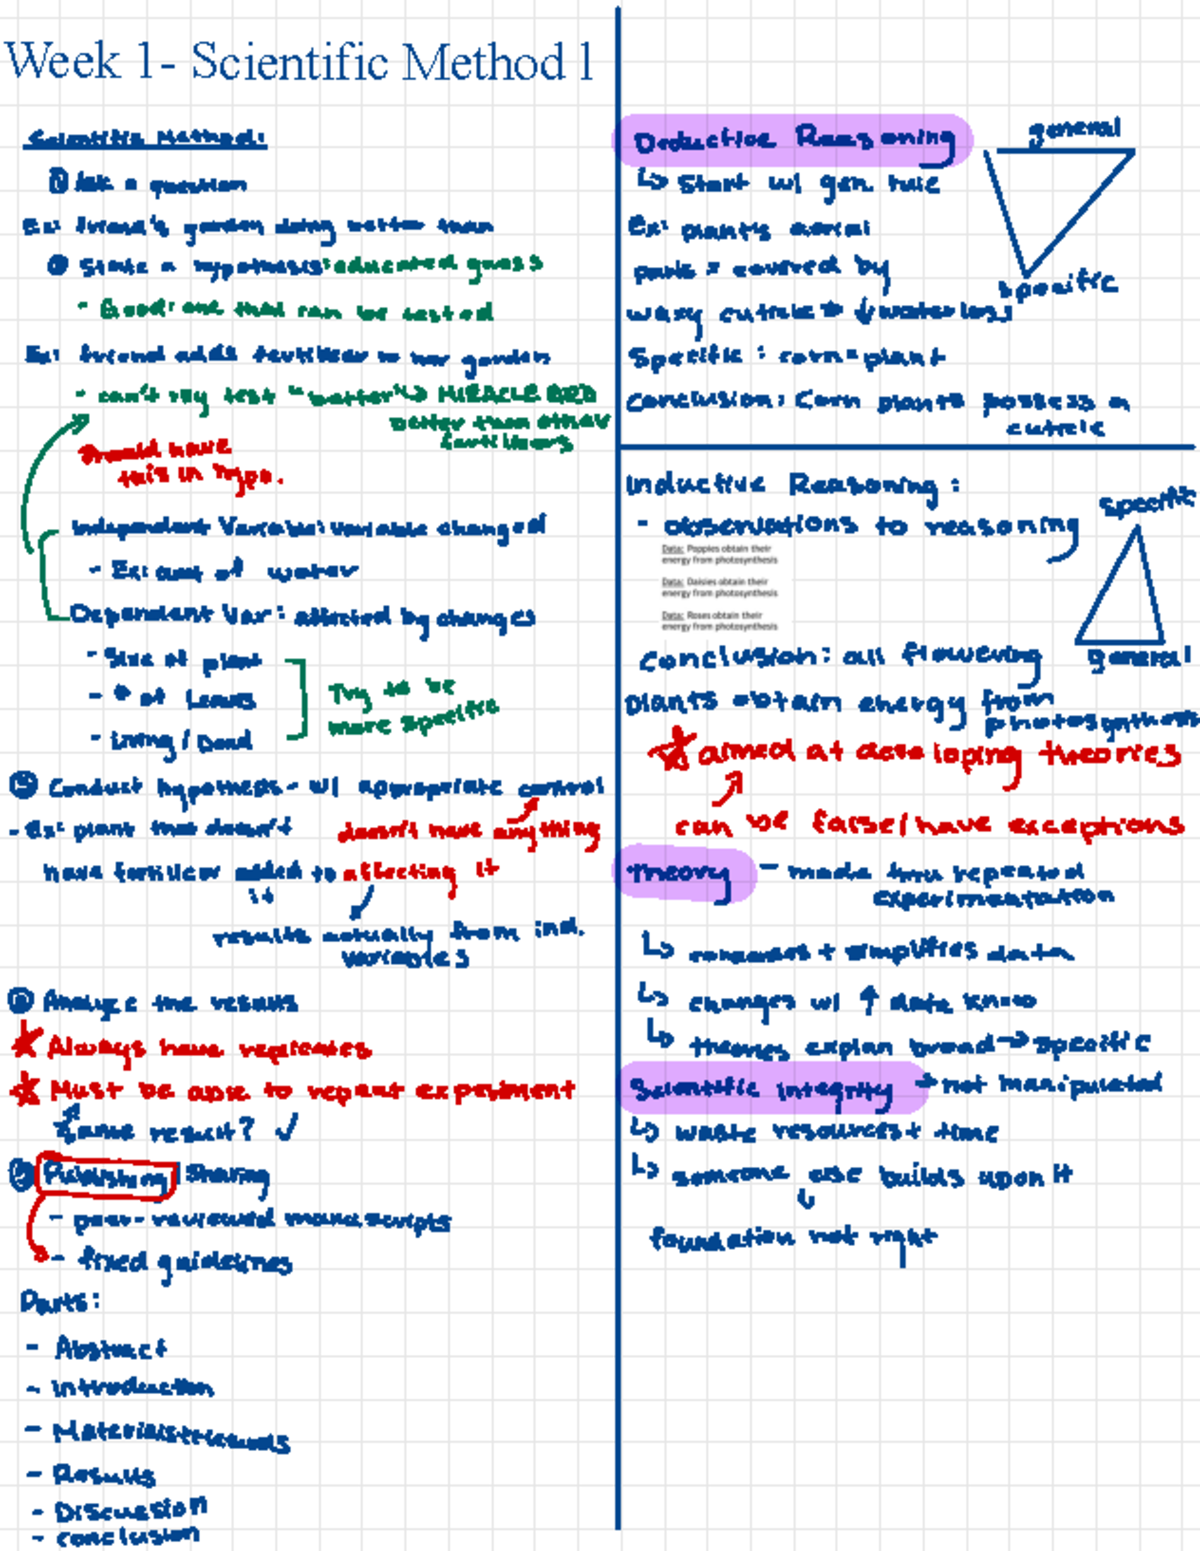 Week 1- Scientific Method 1
Scientific Method:
① Ask a question
Ex: friend's garden doing better than
② State a hypothesis: educated guess
- Good: one that can be tested
Ex: friend adds fertilizer to her garden
- can't say test "better" → MIRACLE GRO
better than other
fertilizers
Should have
this in hypo.
Independent Variable: variable changed
- Ex: amt of water
Dependent Var: affected by changes
- Size of plant
- # of Leaves
- Living / Dead
Try to be
more specific
③ Conduct hypothesis - w/ appropriate control
- Ex: plant that doesn't
have fertilizer added to
it
doesn't have anything
affecting it
results actually from ind.
variables
④ Analyze the results
★ Always have replicates
★ Must be able to repeat experiment
Same result? ✓
⑤ Publishing / Sharing
- peer-reviewed manuscripts
- fixed guidelines
Parts:
- Abstract
- Introduction
- Materials + methods
- Results
- Discussion
- Conclusion
Deductive Reasoning
↳ Start w/ gen rule
Ex: plant's aerial
parts = covered by
waxy cuticle → ↓ water loss
Specific: corn = plant
Conclusion: Corn plants possess a
cuticle
general
specific
Inductive Reasoning:
- observations to reasoning
Data: Poppies obtain their
energy from photosynthesis
Data: Daisies obtain their
energy from photosynthesis
Data: Roses obtain their
energy from photosynthesis
specific
general
Conclusion: all flowering
plants obtain energy from
photosynthesis
★ aimed at developing theories
can be false/have exceptions
Theory - made thru repeated
experimentation
↳ + simplifies data
↳ changes w/ ↑ data known
↳ theories explain broad → specific
Scientific integrity → not manipulated
↳ waste resources + time
↳ someone else builds upon it
↓
foundation not right